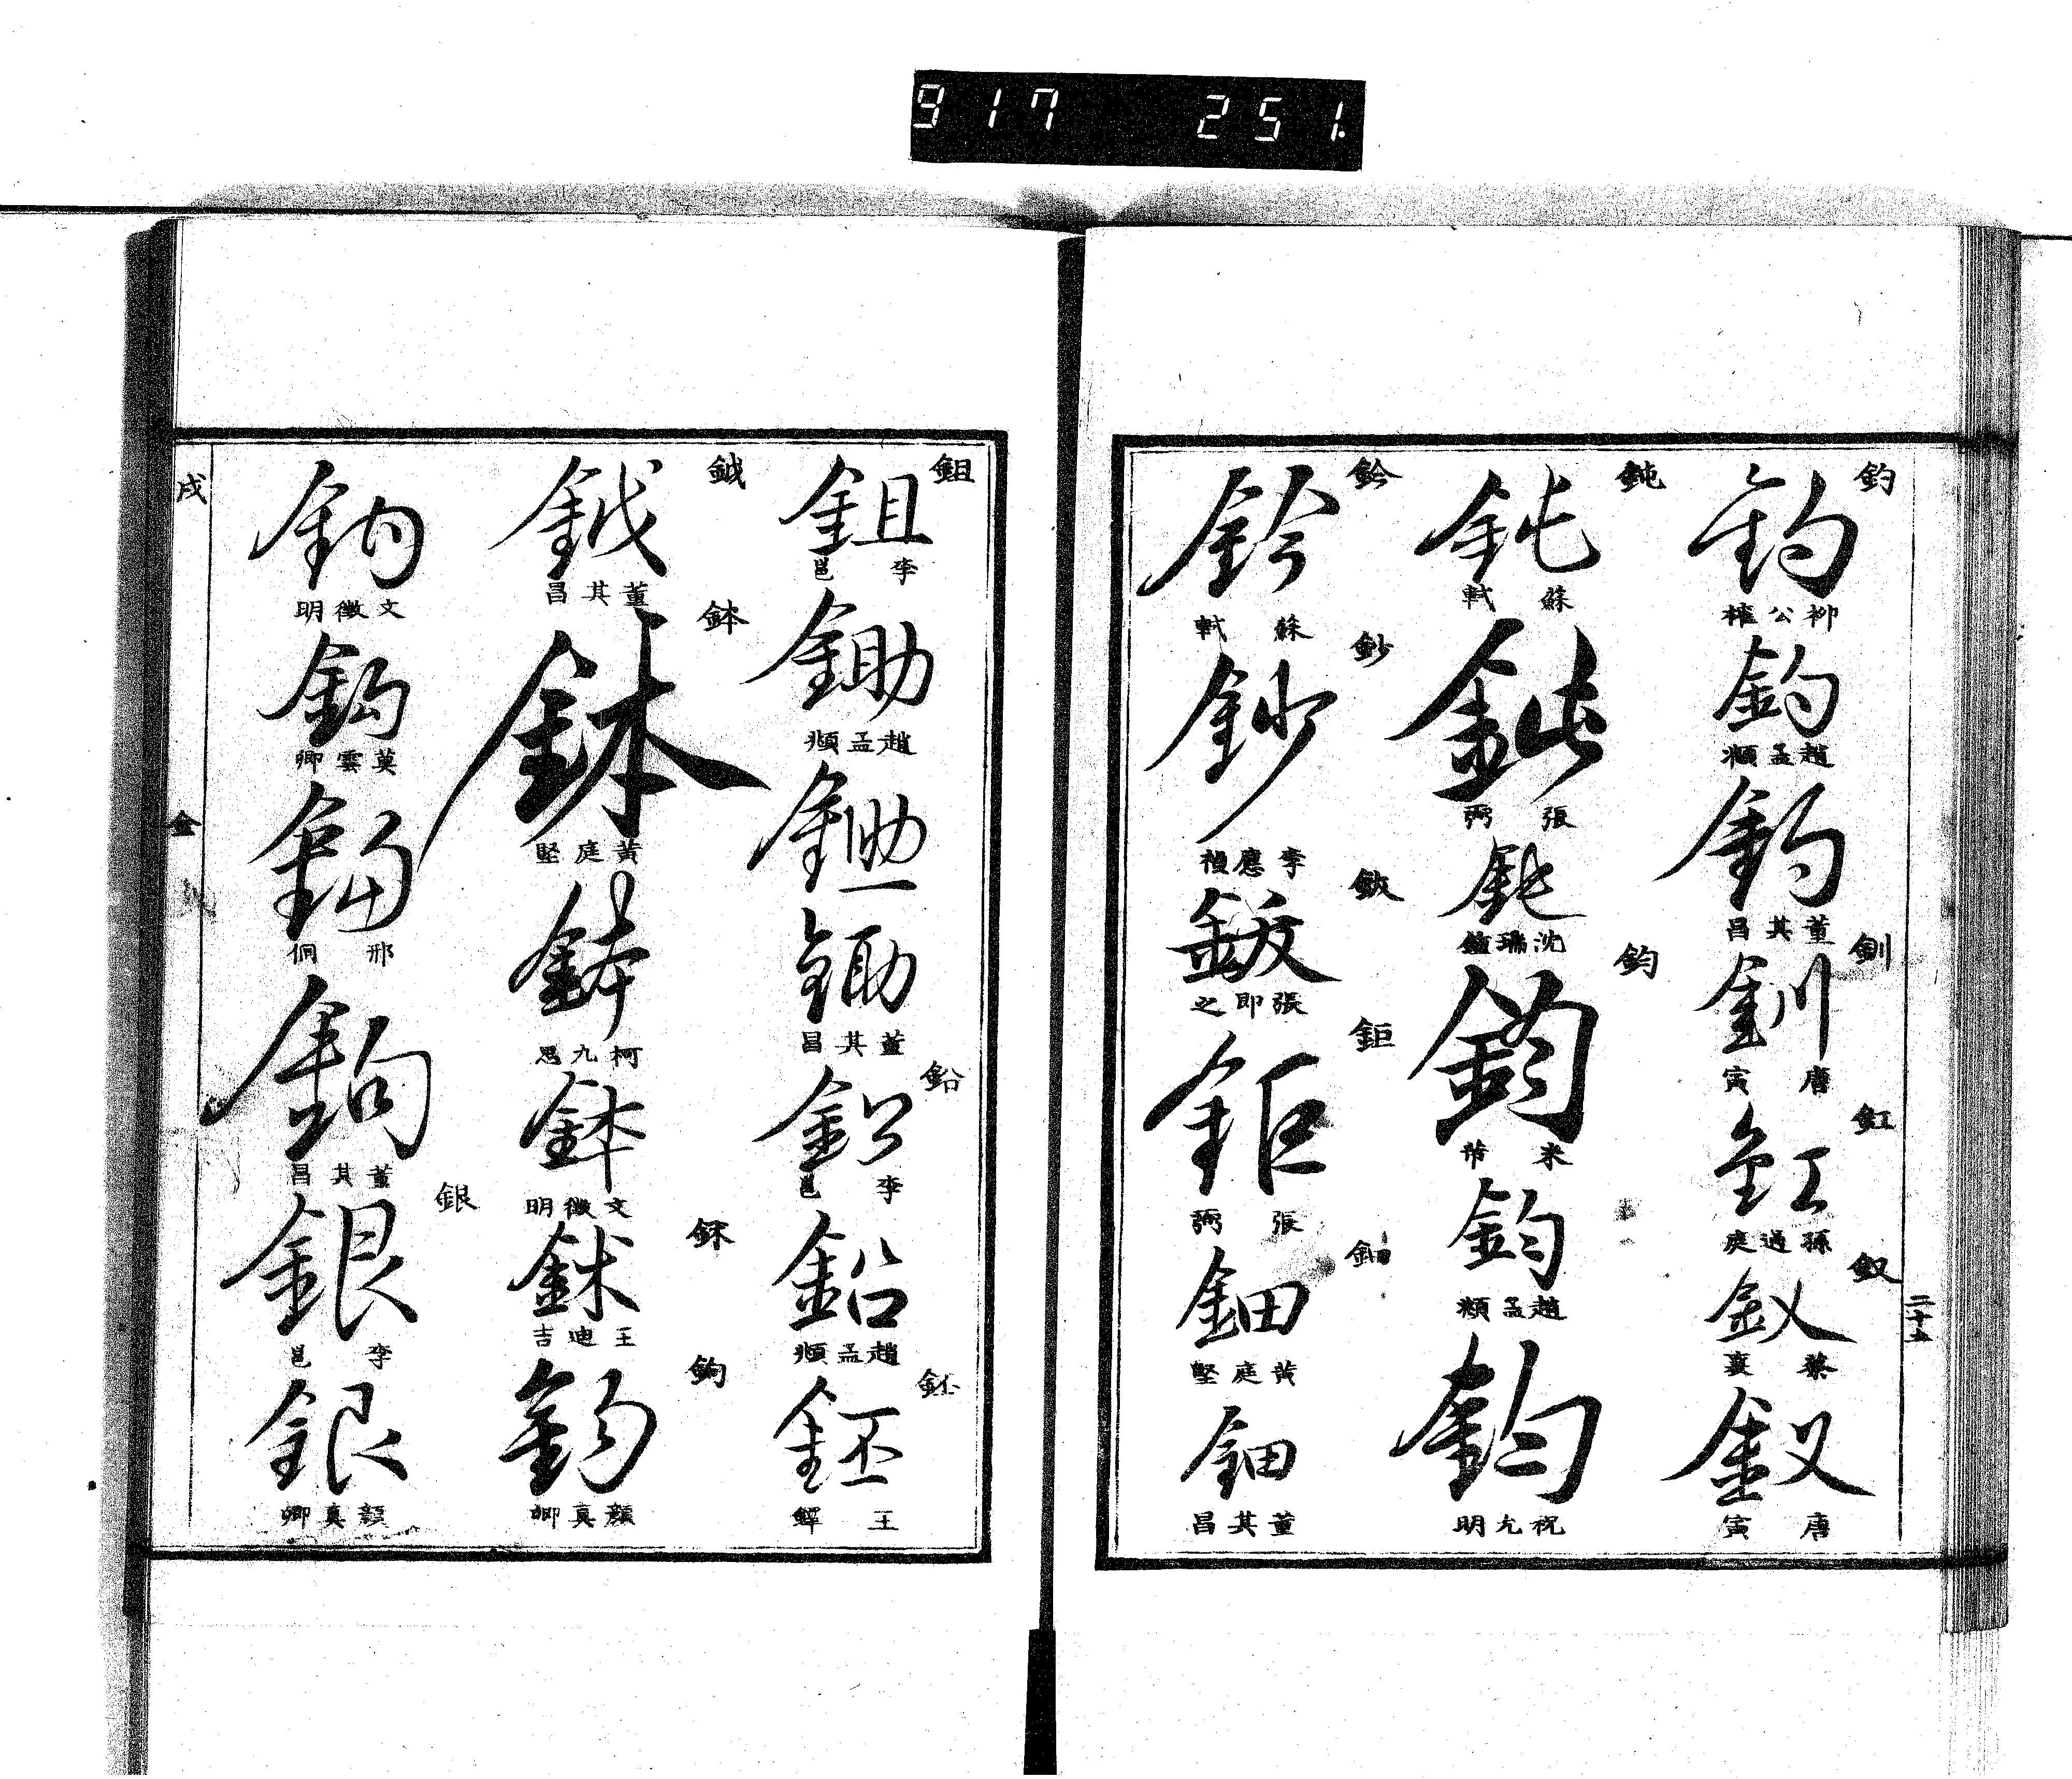 917 251.
釣
釣
權公柳
釣
頫孟趙
釣
昌其董
釧
釧
寅唐
釭
釭
庭過孫
釵
釵
襄蔡
釵
寅唐
二十五
鈍
鈍
軾蘇
鈍
弼張
鈍
沈
鈞
鈞
芾米
鈞
頫孟趙
鈞
明允祝
鈐
鈐
軾蘇
鈔
鈔
禎應李
鈸
之即張
鉅
鉅
弼張
鈿
鈿
堅庭黃
鈿
昌其董
鉏
鉏
邕李
鋤
頫孟趙
鋤
鋤
昌其董
鉛
鉛
邕李
鉛
頫孟趙
鉟
鉟
鐸王
鉞
鉞
昌其董
鉢
鉢
堅庭黃
鉢
思九柯
鉢
明徵文
鉥
吉迪王
鉤
鉤
卿真顏
鉤
明徵文
鉤
卿雲莫
鉤
侗邢
鉤
昌其董
銀
銀
邕李
銀
卿真顏
戌
金